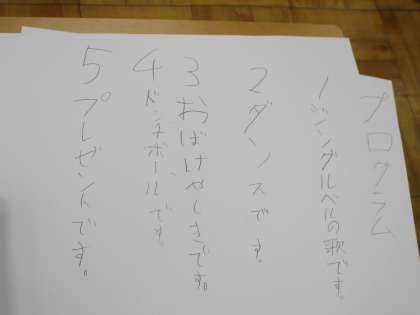 プログラム
1 ジングルベルの歌です。
2 ダンスです。
3 おばけやしきです。
4 ドッチボールです。
5 プレゼントです。